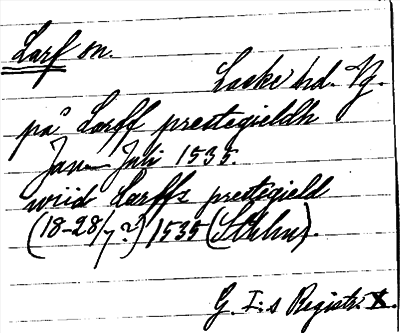 Larf sn.
Laske hd. Vg.
på Larff prestegieldh
Jan–Juli 1535.
wiid Larffz prestegield
(18-28/7?) 1535 (Sthlm).
G. I:s Registr. X.